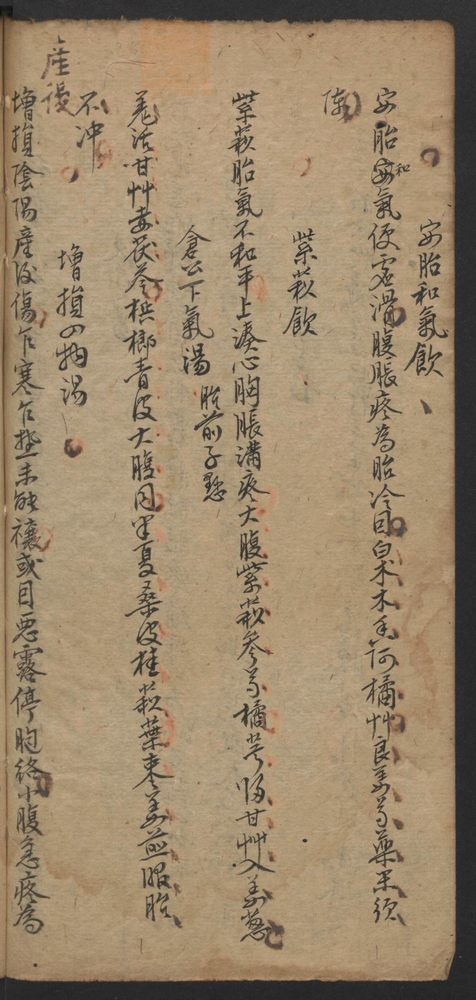 安胎和氣飲
安胎和氣便虛滑腹脹疼為胎冷因白朮木香訶橘艸良姜芍藥米須
陳
紫蘇飲
紫蘇胎氣不和平上湊心胸脹滿疼大腹紫蘇參芎橘芍歸甘艸入姜葱
倉公下氣湯 胎前子懸
羗活甘艸赤茯苓梹榔青皮大腹同半夏桑皮桂蘇葉枣姜煎服胎
不冲
增損四物湯
產後
增損陰陽產後傷乍寒乍熱未能禳或因惡露停胞絡小腹急疼為